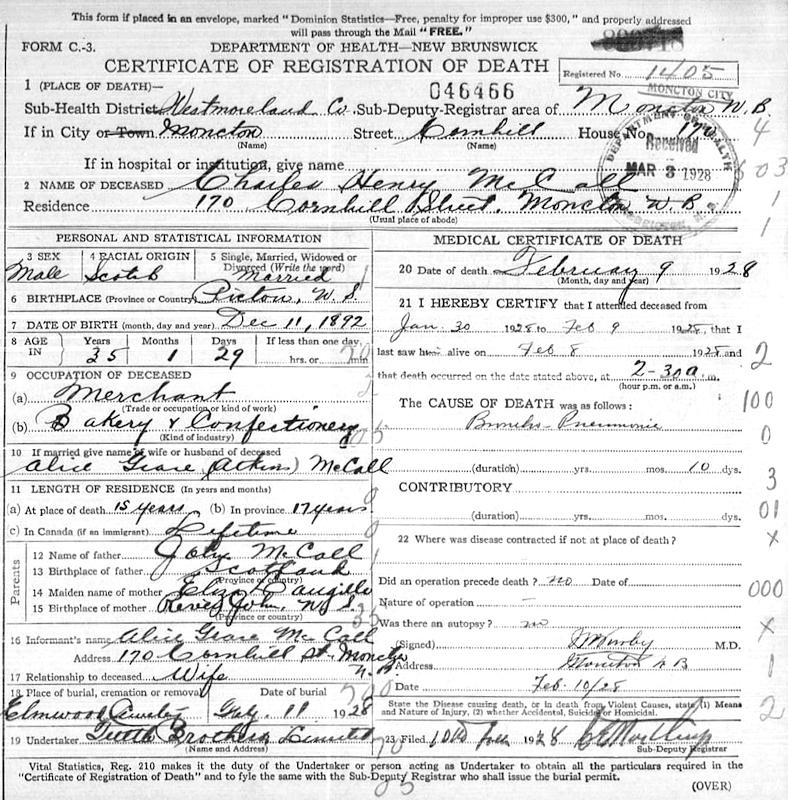 This form if placed in an envelope, marked "Dominion Statistics—Free, penalty for improper use $300," and properly addressed
will pass through the Mail "FREE."
FORM C.-3. DEPARTMENT OF HEALTH—NEW BRUNSWICK
CERTIFICATE OF REGISTRATION OF DEATH
Registered No. 1405
1 (PLACE OF DEATH)— 046466 MONCTON CITY
Sub-Health District Westmoreland Co. Sub-Deputy-Registrar area of Moncton N.B
If in City or Town Moncton Street Cornhill House No. 170 4
(Name) (Name)
DEPARTMENT OF HEALTH Received MAR 3 1928
If in hospital or institution, give name 603
2 NAME OF DECEASED Charles Henry McCall
Residence 170 Cornhill Street, Moncton N.B. 1
(Usual place of abode) 1
PERSONAL AND STATISTICAL INFORMATION
3 SEX 4 RACIAL ORIGIN 5 Single, Married, Widowed or
Divorced (Write the word)
Male Scotch Married 1
6 BIRTHPLACE (Province or Country) Pictou, N.S.
7 DATE OF BIRTH (month, day and year) Dec 11, 1892
8 AGE IN Years Months Days If less than one day,
35 1 29 hrs. or min
9 OCCUPATION OF DECEASED
(a) Merchant
(Trade or occupation or kind of work)
(b) Bakery & Confectionery
(Kind of industry)
10 If married give name of wife or husband of deceased
Alice Grace (Atkins) McCall
11 LENGTH OF RESIDENCE (In years and months)
(a) At place of death 15 years (b) In province 17 years
(c) In Canada (if an immigrant) Lifetime
Parents
12 Name of father John McCall
13 Birthplace of father Scotland
(Province or country)
14 Maiden name of mother Eliza
15 Birthplace of mother River John, N.S.
(Province or country)
16 Informant's name Alice Grace McCall
Address 170 Cornhill St. Moncton N.B.
17 Relationship to deceased Wife
18 Place of burial, cremation or removal Date of burial
Elmwood 11 1928
19 Undertaker Tuttle Brothers Limited
(Name and Address)
MEDICAL CERTIFICATE OF DEATH
20 Date of death February 9 1928
(Month, day and year)
21 I HEREBY CERTIFY that I attended deceased from
Jan. 30 1928 to Feb 9 1928, that I
last saw him alive on Feb 8 1928 and 2
that death occurred on the date stated above, at 2-30 a.m.
(hour p.m. or a.m.)
The CAUSE OF DEATH was as follows: 100
Broncho-Pneumonia 0
(duration) yrs. mos. 10 dys.
CONTRIBUTORY 3
(duration) yrs. mos. dys. 01
22 Where was disease contracted if not at place of death? x
Did an operation precede death? no Date of 000
Nature of operation —
Was there an autopsy? no x
(Signed) M.D.
Address Moncton N B 1
Date Feb. 10/28
State the Disease causing death, or in death from Violent Causes, state (1) Means
and Nature of Injury, (2) whether Accidental, Suicidal or Homicidal. 2
23 Filed 10th Feb 1928
Sub-Deputy Registrar
Vital Statistics, Reg. 210 makes it the duty of the Undertaker or person acting as Undertaker to obtain all the particulars required in the
"Certificate of Registration of Death" and to fyle the same with the Sub-Deputy Registrar who shall issue the burial permit.
(OVER)